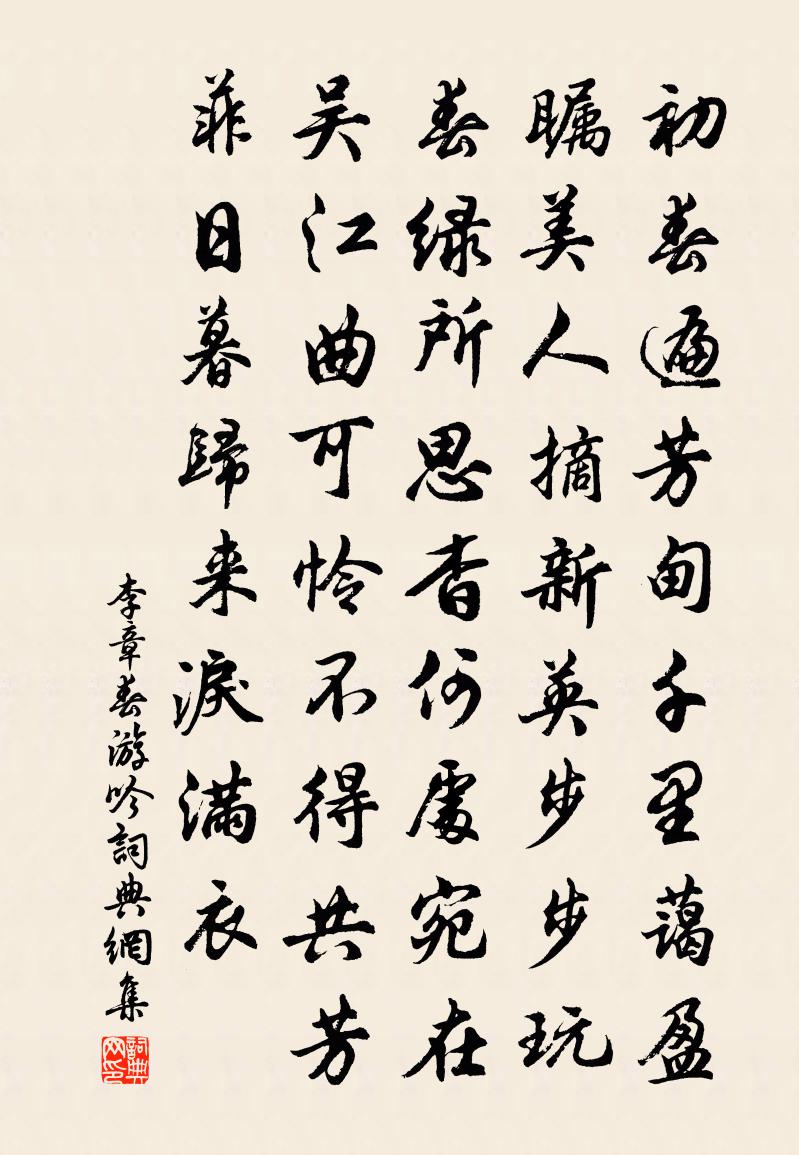 初春遍芳甸千里藹盈
矚美人摘新英步步玩
春綠所思杳何處宛在
吴江曲可怜不得共芳
菲日暮歸来淚滿衣
李章春游吟詞典網集
詞典网印